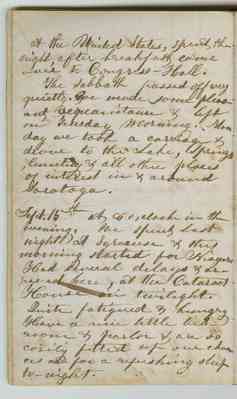 at the United States, spent the
night, after breakfast, came
over to Congress Hall.
The Sabbath passed off very
quietly. We made some pleas-
ant acquaintance & left
on Monday morning.
day we took a carriage &
drove to the Lake, Springs
Cemetery & all other places
of interest in & around
Saratoga.
Sept. 15th at 6 o,clock in the
evening. We spent last
night at Syracuse & this
morning started for Niagara
Had several delays & ar-
rived here, at the Cataract
House in twilight.
Quite fatigued & hungry
Have a nice little bed
room & parlor & are so
cosily fitted up our chan-
ces are for a refreshing sleep
to-night.